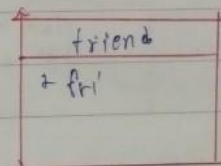 friend
2 fri